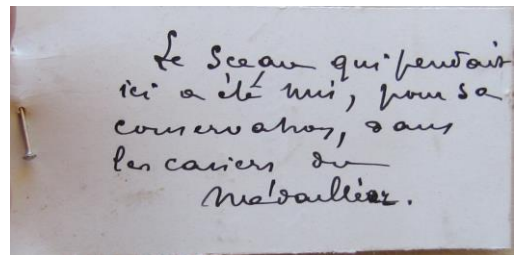 Le sceau qui pendait
ici a été mis, pour sa
conservation, dans
les casiers du
Médaillier.